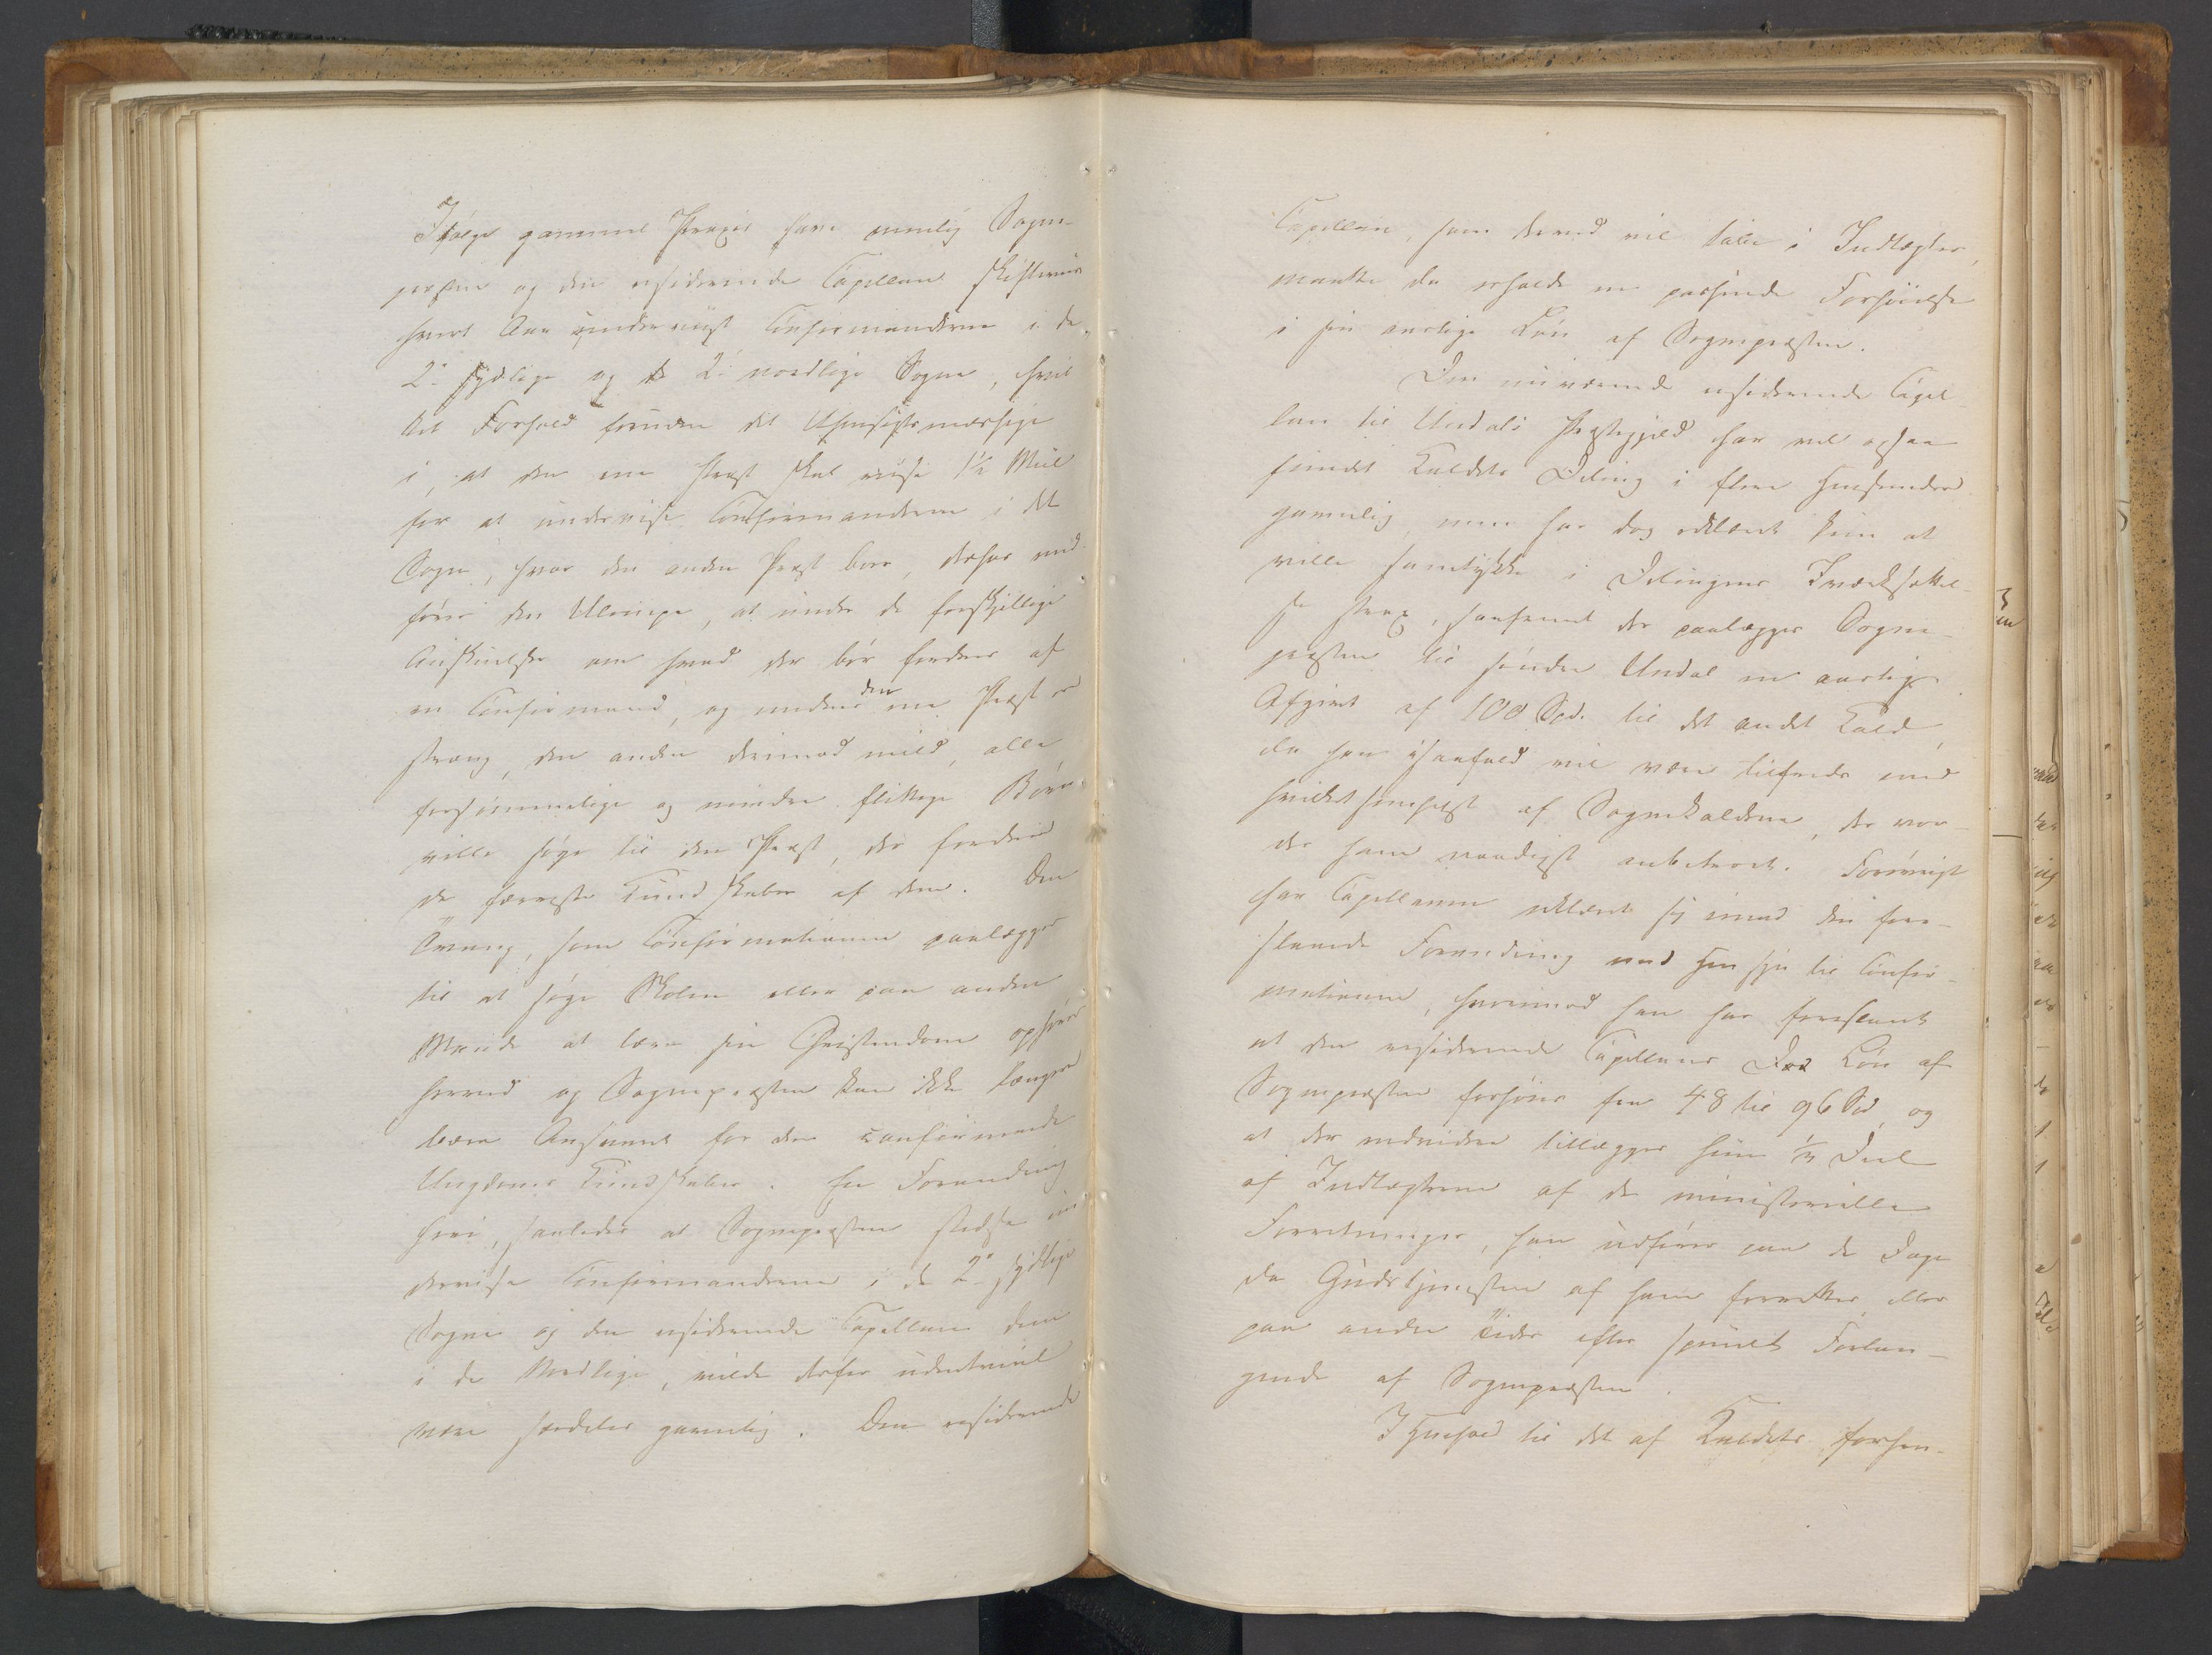 Ifølge gammel Praxis have nemlig Sogne-
præsten og den residerende Capellan skifteviis
hvert Aar underviist Confirmanderne i de
2de sydlige og de 2de nordlige Sogne, hvil-
ket Forhold foruden det Uhensigtsmæssige
i, at den ene Præst skal reise 1½ Miil
for at undervise Confirmanderne i det
Sogn, hvor den anden Præst boer, derhos med-
fører den Ulempe, at under de forskjellige
Anskuelser om hvad der bør fordres af
en Confirmand, og medens den ene Præst er
stræng, den anden derimod mild, alle
forsømmelige og mindre flittige Børn
ville søge til den Præst, der fordrer
de færreste Kundskaber af dem. Den
Tvang, som Confirmationen paalægger
til at søge Skolen eller paa anden
Maade at lære sin Christendom ophører
herved og Sognepræsten kan ikke længer
bære Ansvaret for den confirmerede
Ungdoms Kundskaber. En Forandring
heri, saaledes at Sognepræsten stedse un-
derviste Confirmanderne i de 2de sydlige
Sogne og den residerende Capellan dem
i de Nordlige, vilde derfor udentvivl
være særdeles gavnlig. Den residerende
Capellan, som derved vil tabe i Indtægter,
maatte da erholde en passende Forhøielse
i sin aarlige Løn af Sognepræsten.
Den nuværende residerende Capel-
lan til Undals Præstegjeld har vel ogsaa
fundet Kaldets Deling i flere Henseender
gavnlig, men har dog erklæret kun at
ville samtykke i Delingens Iværksættel-
se strax, saafremt der paalægges Sogne-
præsten til søndre Undal en aarlig
Afgivt af 100 Spd. til det andet Kald,
da han isaafald vil være tilfreds med
hvilketsomhelst af Sognekaldene, der vor-
der ham naadigst anbetroet. Forøvrigt
har Capellanen erklæret sig imod den fore-
slaaede Forandring med Hensyn til Confir-
mationen, hvorimod han har foreslaaet
at den residerende Capellans Løn af
Sognepræsten forhøies fra 48 til 96 Spd, og
at der endvidere tillægges ham ⅓ Deel
af Indtægterne af de ministerielle
Forretninger, han udfører paa de Dage
da Gudstjenesten af ham forrettes eller
paa andre Tider efter speciell Forlan-
gende af Sognepræsten.
I Henhold til det af Kaldets forhen-